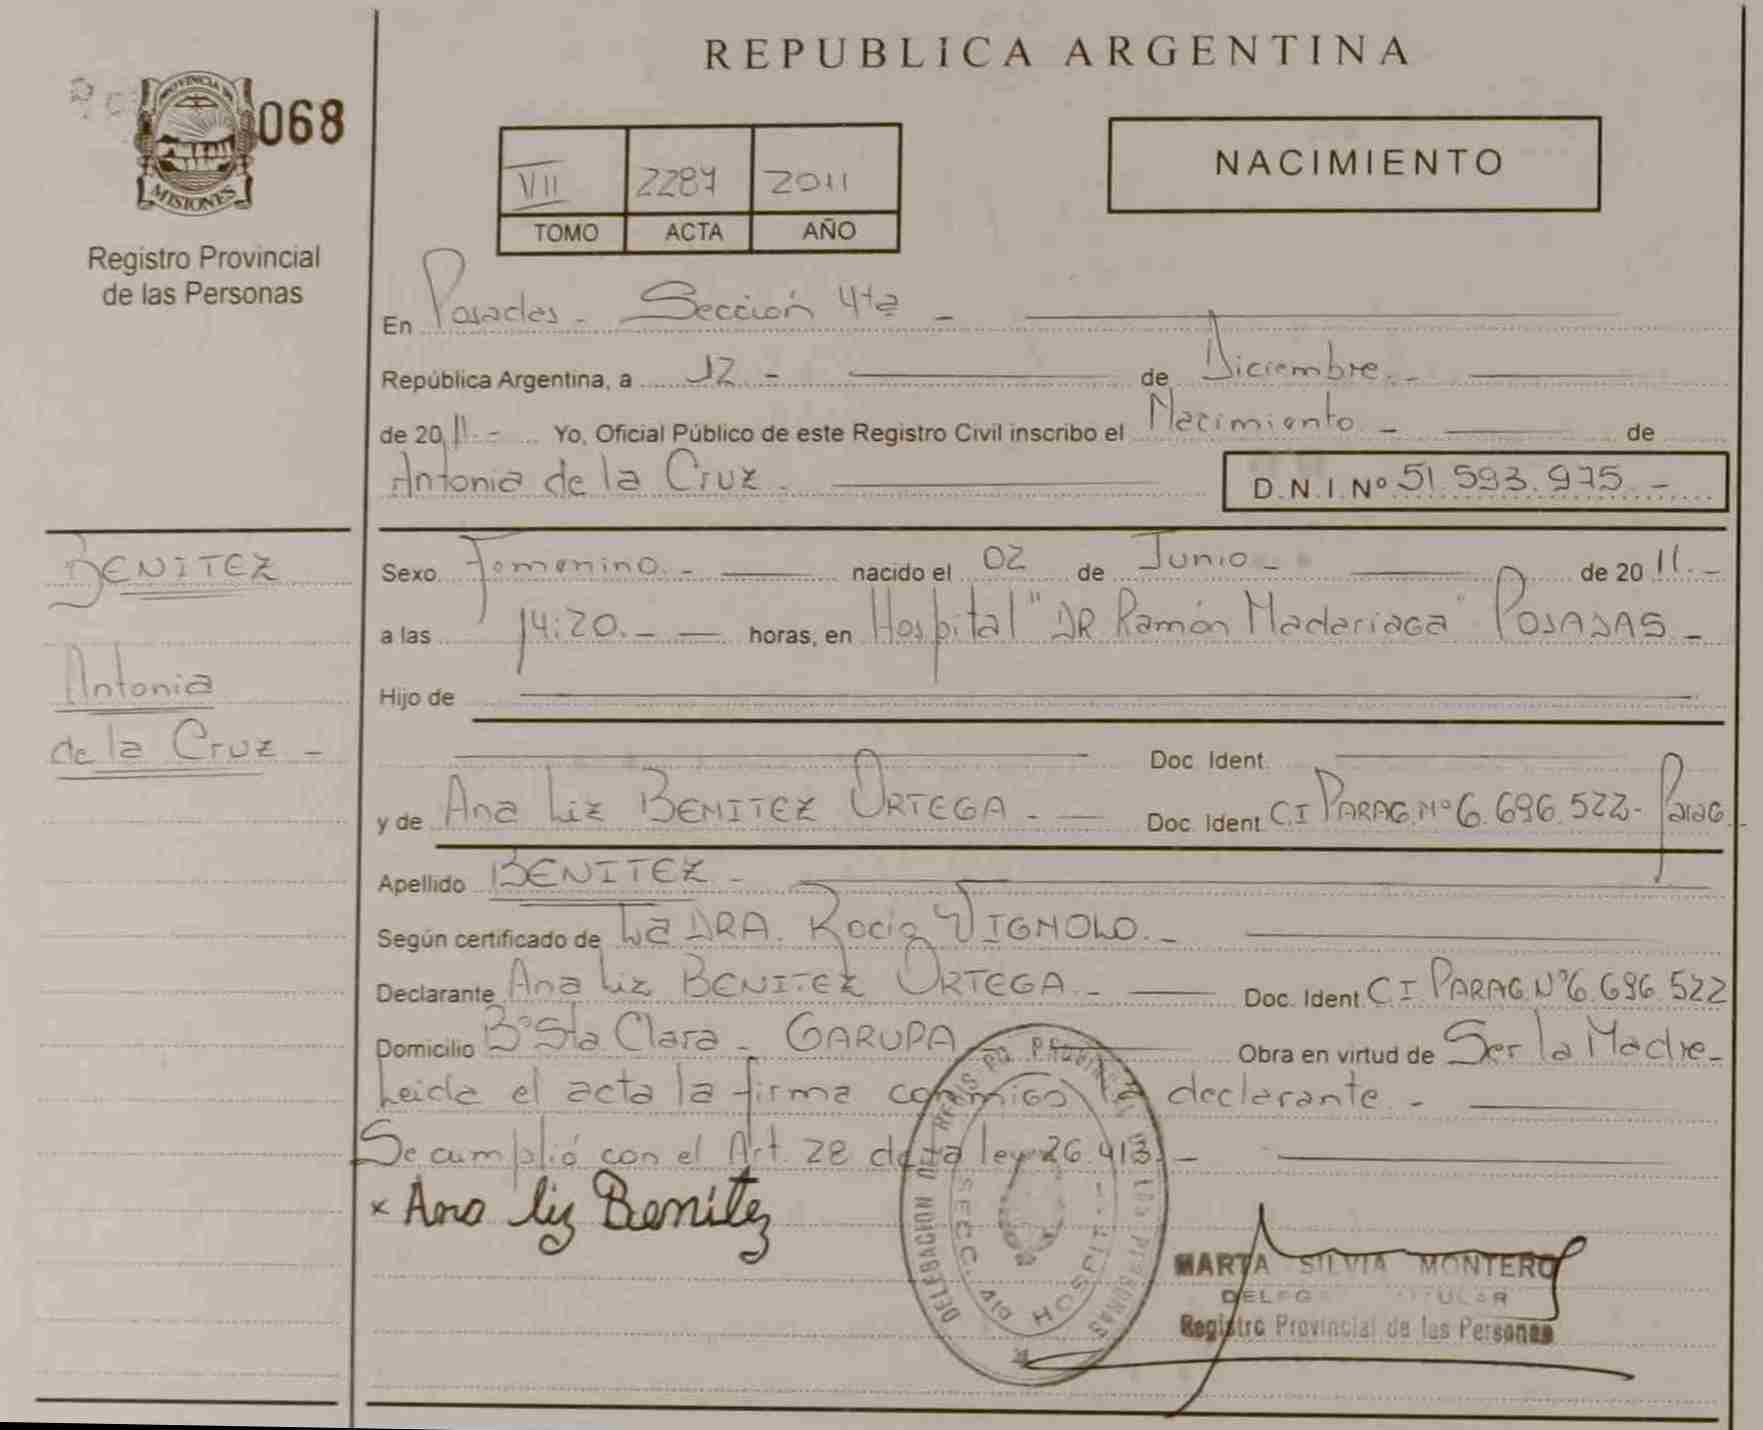 REPUBLICA ARGENTINA
PROVINCIA DE
MISIONES
068
Registro Provincial
de las Personas
NACIMIENTO
VII 2287 2011
TOMO ACTA AÑO
En Posadas - Sección 4ta -
República Argentina, a 12 - de Diciembre. -
de 20 11. - Yo, Oficial Público de este Registro Civil inscribo el Nacimiento - de
Antonia de la Cruz. D.N.I. Nº 51.593.975. -
BENITEZ
Antonia
de la Cruz -
Sexo Femenino. - nacido el 02 de Junio - de 20 11. -
a las 14:20. - horas, en Hospital "DR Ramón Madariaga" POSADAS -
Hijo de
Doc. Ident.
y de Ana Liz BENITEZ ORTEGA. - Doc. Ident. C.I PARAG. Nº 6.696.522 - Parag.
Apellido BENITEZ -
Según certificado de La DRA. Rocio VIGNOLO. -
Declarante Ana Liz BENITEZ ORTEGA. - Doc. Ident. C I PARAG. Nº 6.696.522
Domicilio Bº Sta Clara - GARUPA Obra en virtud de Ser la Madre -
Leida el acta la firma conmigo la declarante. -
Se cumplió con el Art. 28 de la ley 26.413. -
x Ana liz Benítez
DELEGACION DEL REGISTRO PROVINCIAL DE LAS PERSONAS
SECC. 4ta HOSPIT.
MARTA SILVIA MONTERO
Registro Provincial de las Personas